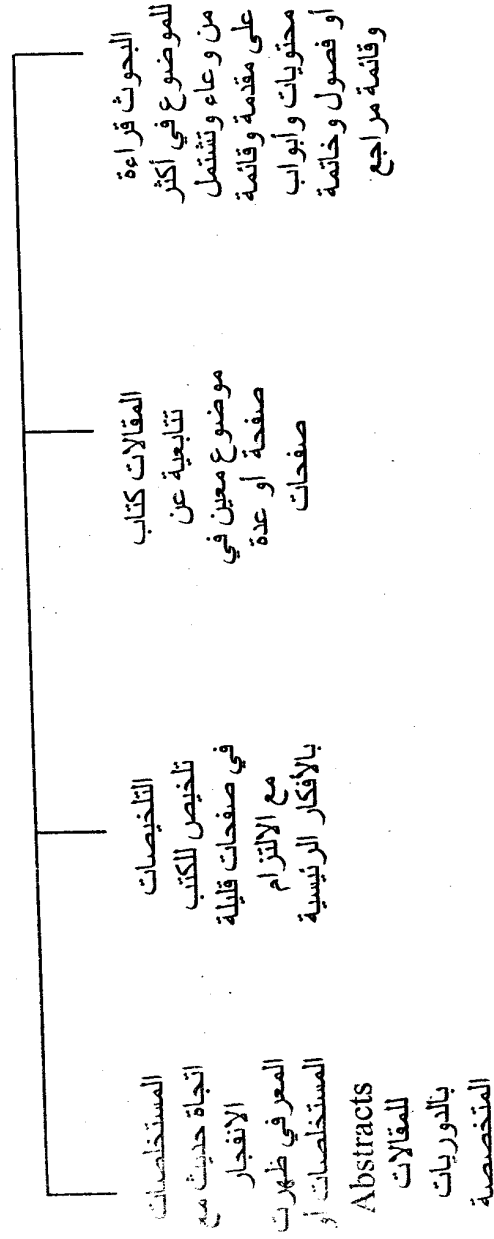 البحوث قراءة
للموضوع في أكثر
من وعاء وتشتمل
على مقدمة وقائمة
محتويات وأبواب
أو فصول وخاتمة
وقائمة مراجع
المقالات كتاب
تتابعية عن
موضوع معين في
صفحة أو عدة
صفحات
التلخيصات
تلخيص للكتب
في صفحات قليلة
مع الالتزام
بالأفكار الرئيسية
المستخلصات
اتجاة حديث مع
الانفجار
المعرفي ظهرت
المستخلصات أو
Abstracts
للمقالات
بالدوريات
المتخصصة